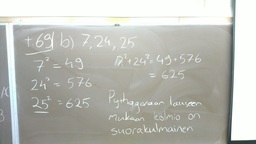 t69 b) 7, 24, 25
7² = 49
24² = 576
25² = 625
7²+24² = 49+576
= 625
Pythagoraan lauseen
mukaan kolmio on
suorakulmainen